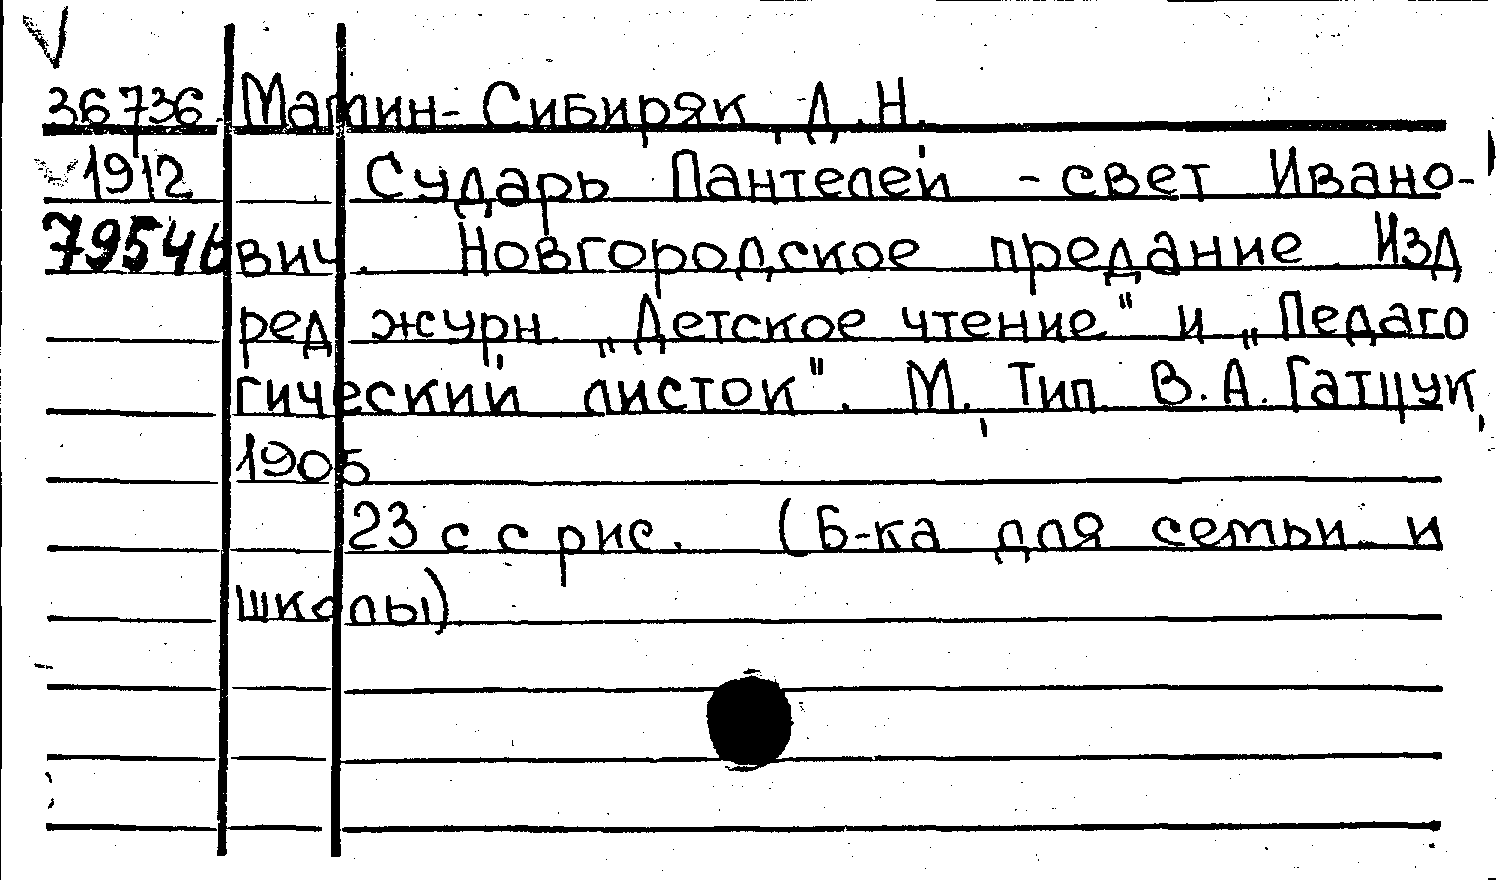 36736 Мамин-Сибиряк, Д.Н.
1912 Сударь Пантелей - свет Ивано-
79546 вич. Новгородское предание Изд
ред журн. „Детское чтение" и „Педаго
гический листок". М., Тип. В.А.Гатцук,
1905
23 с с рис. (Б-ка для семьи и
школы)